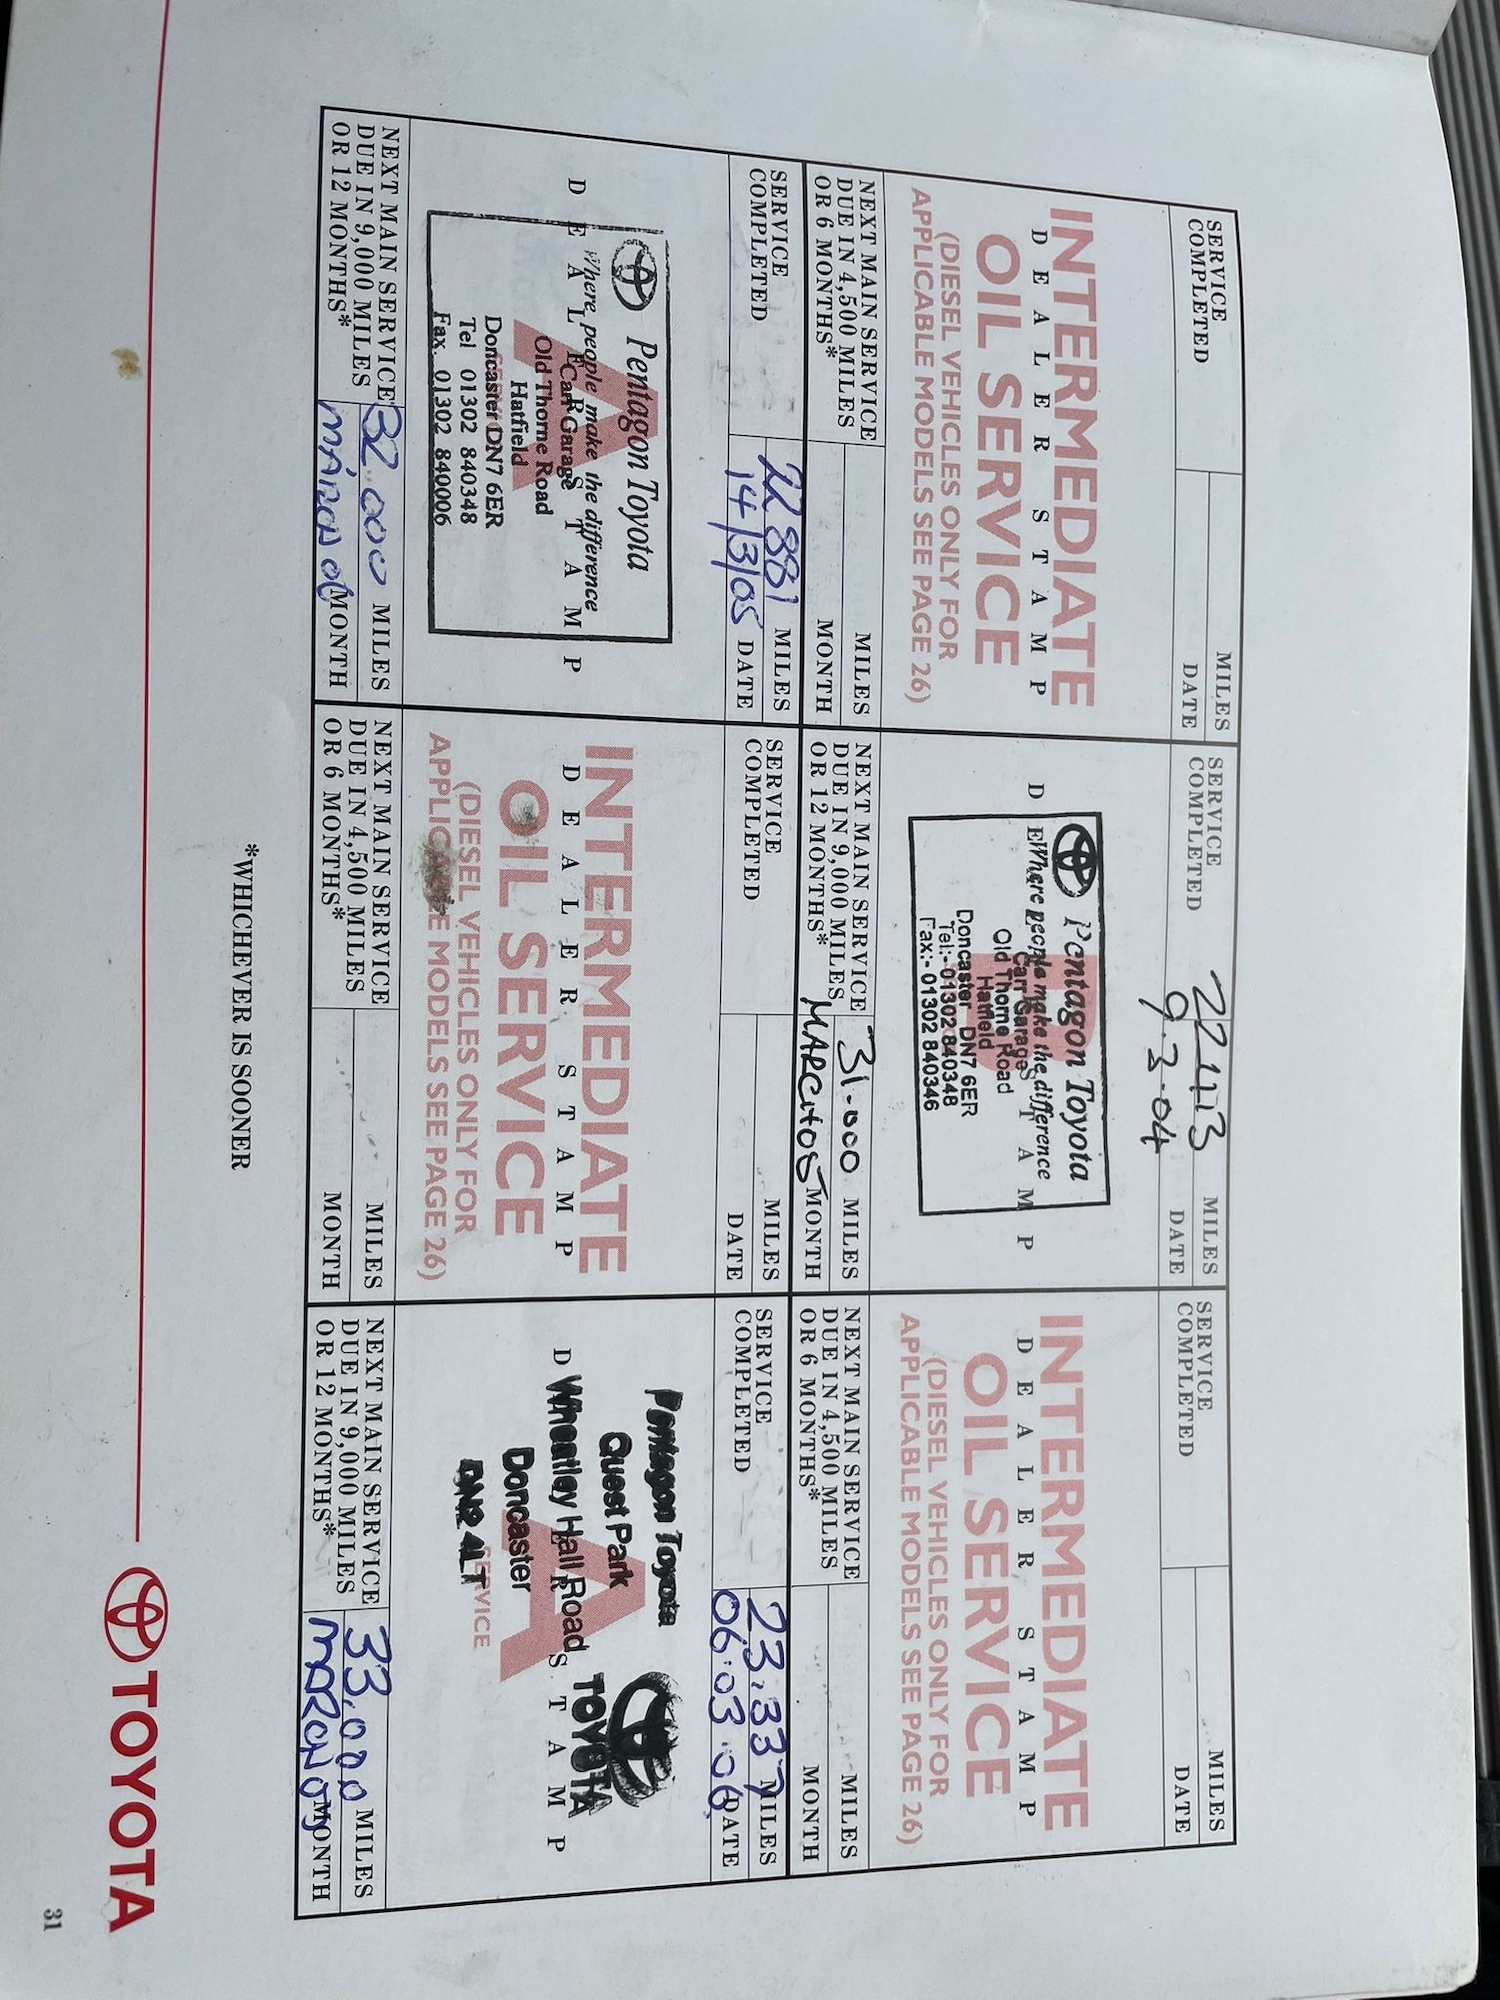 SERVICE
COMPLETED
MILES
DATE
INTERMEDIATE
DEALER STAMP
OIL SERVICE
(DIESEL VEHICLES ONLY FOR
APPLICABLE MODELS SEE PAGE 26)
NEXT MAIN SERVICE
DUE IN 4,500 MILES
OR 6 MONTHS*
MILES
MONTH
SERVICE
COMPLETED
22413 MILES
9.3.04 DATE
Pentagon Toyota
Where people make the difference
DEALER STAMP
Carr Garage
Old Thorne Road
Hatfield
Doncaster DN7 6ER
Tel:- 01302 840348
Fax:- 01302 840346
NEXT MAIN SERVICE
DUE IN 9,000 MILES
OR 12 MONTHS*
31.000 MILES
MARCH 05 MONTH
SERVICE
COMPLETED
MILES
DATE
INTERMEDIATE
DEALER STAMP
OIL SERVICE
(DIESEL VEHICLES ONLY FOR
APPLICABLE MODELS SEE PAGE 26)
NEXT MAIN SERVICE
DUE IN 4,500 MILES
OR 6 MONTHS*
MILES
MONTH
SERVICE
COMPLETED
22881 MILES
14/3/05 DATE
Pentagon Toyota
Where people make the difference
DEALER STAMP
Carr Garage
A
Old Thorne Road
Hatfield
Doncaster DN7 6ER
Tel 01302 840348
Fax. 01302 840006
NEXT MAIN SERVICE
DUE IN 9,000 MILES
OR 12 MONTHS*
32.000 MILES
MARCH 06 MONTH
SERVICE
COMPLETED
MILES
DATE
INTERMEDIATE
DEALER STAMP
OIL SERVICE
(DIESEL VEHICLES ONLY FOR
APPLICABLE MODELS SEE PAGE 26)
NEXT MAIN SERVICE
DUE IN 4,500 MILES
OR 6 MONTHS*
MILES
MONTH
SERVICE
COMPLETED
23.337 MILES
06.03.06. DATE
Pentagon Toyota
Quest Park
Wheatley Hall Road
TOYOTA
DEALER STAMP
Doncaster
A
DN2 4LT
SERVICE
NEXT MAIN SERVICE
DUE IN 9,000 MILES
OR 12 MONTHS*
33,000 MILES
MARCH MONTH
*WHICHEVER IS SOONER
TOYOTA
31